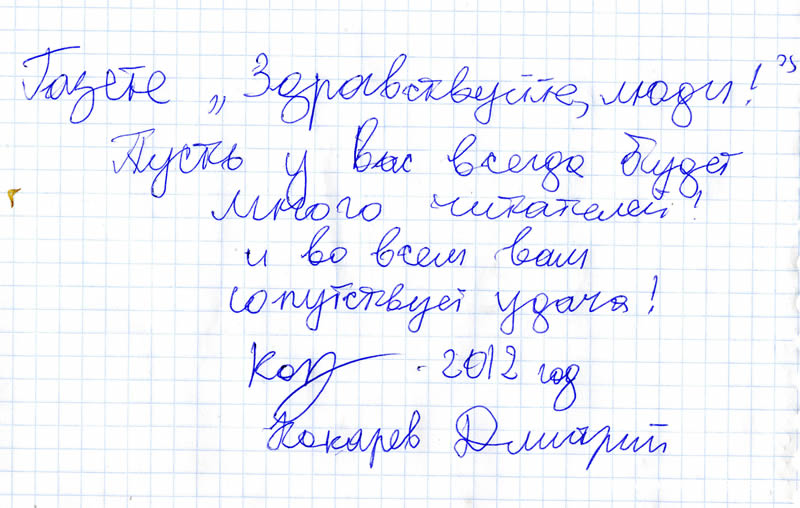 Газете „Здравствуйте, люди!”
Пусть у вас всегда будет
много читателей!
и во всем вам
сопутствует удача!
2012 год
Кокарев Дмитрий